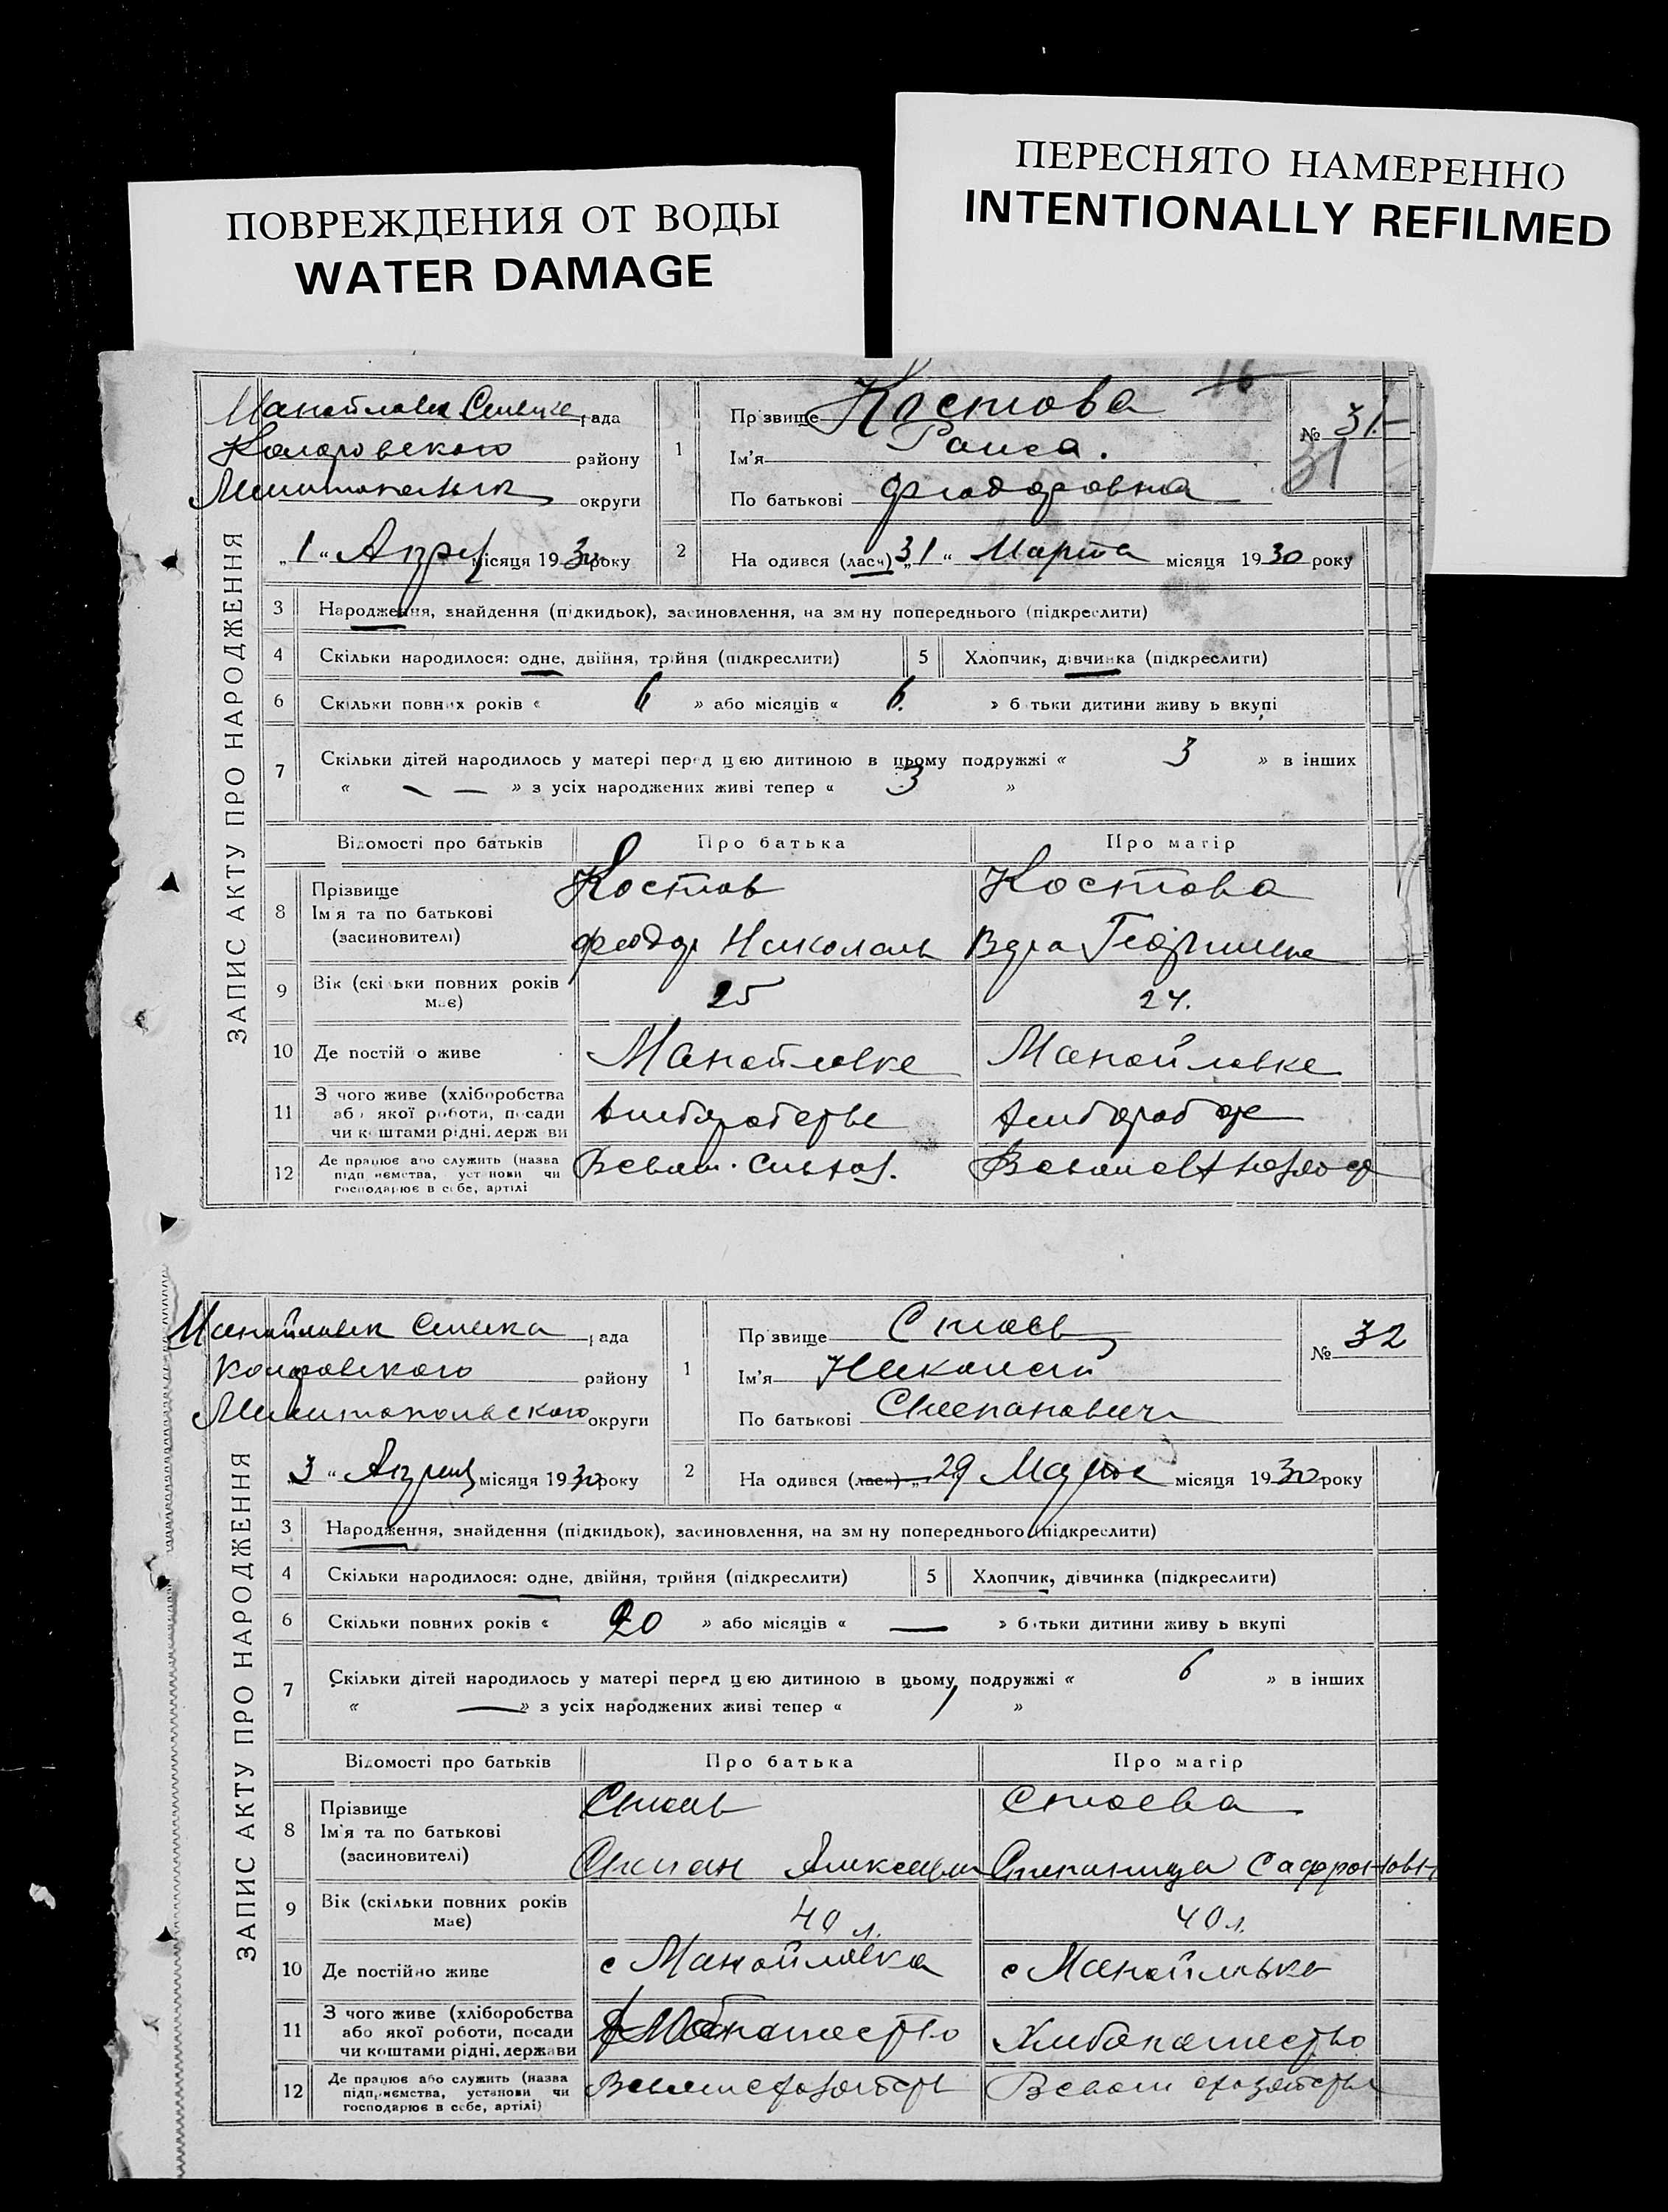 ПОВРЕЖДЕНИЯ ОТ ВОДЫ
WATER DAMAGE
ПЕРЕСНЯТО НАМЕРЕННО
INTENTIONALLY REFILMED
16
ЗАПИС АКТУ ПРО НАРОДЖЕННЯ
рада
району
округи
1
Прізвище Костова
Ім'я Раиса.
По батькові Феодоровна
№ 31
31
„1“ місяця 1930 року
2
На одився (лась) „31“ Марта місяця 1930 року
3 Народження, знайдення (підкидьок), засиновлення, на зм ну попереднього (підкреслити)
4 Скільки народилося: одне, двійня, трійня (підкреслити)
5 Хлопчик, дівчинка (підкреслити)
6 Скільки повних років « 6 » або місяців « 6. » б тьки дитини живу ь вкупі
7 Скільки дітей народилось у матері перед цією дитиною в цьому подружжі « 3 » в інших
« — — » з усіх народжених живі тепер « 3 »
Відомості про батьків Про батька Про матір
8 Прізвище
Ім'я та по батькові
(засиновителі)
Костов Костова
Феодор Вера
9 Вік (скі ьки повних років
має)
25 24.
10 Де постій о живе Манойловке Манойловке
11 З чого живе (хліборобства
або якої роботи, посади
чи коштами рідні, держ ви
12 Де працює або служить (назва
підп иємства, установи чи
господарює в себе, артілі
ЗАПИС АКТУ ПРО НАРОДЖЕННЯ
рада
району
Мелитопольского округи
1
Прізвище Стоев
Ім'я Николай
По батькові Степанович
№ 32
„3“ місяця 1930 року
2
На одився (лась) „29 Марта місяця 1930 року
3 Народження, знайдення (підкидьок), засиновлення, на зм ну попереднього (підкреслити)
4 Скільки народилося: одне, двійня, трійня (підкреслити)
5 Хлопчик, дівчинка (підкреслити)
6 Скільки повних років « 20 » або місяців « — » б тьки дитини живу ь вкупі
7 Скільки дітей народилось у матері перед цією дитиною в цьому подружжі « 6 » в інших
« — » з усіх народжених живі тепер « 1 »
Відомості про батьків Про батька Про матір
8 Прізвище
Ім'я та по батькові
(засиновителі)
Стоев Стоева
Степан
9 Вік (скільки повних років
має)
40 л. 40 л.
10 Де постійно живе с Манойловка с Манойловка
11 З чого живе (хліборобства
або якої роботи, посади
чи коштами рідні, держави
Хлебопашество
12 Де працює або служить (назва
підприємства, установи чи
господарює в себе, артілі)